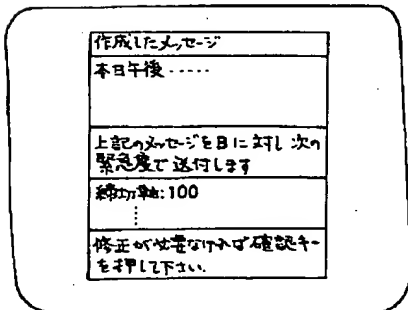 作成したメッセージ
本日午後‥‥‥
上記のメッセージをBに対し次の
緊急度で送付します
締切り軸:100
修正が必要なければ確認キー
を押して下さい.